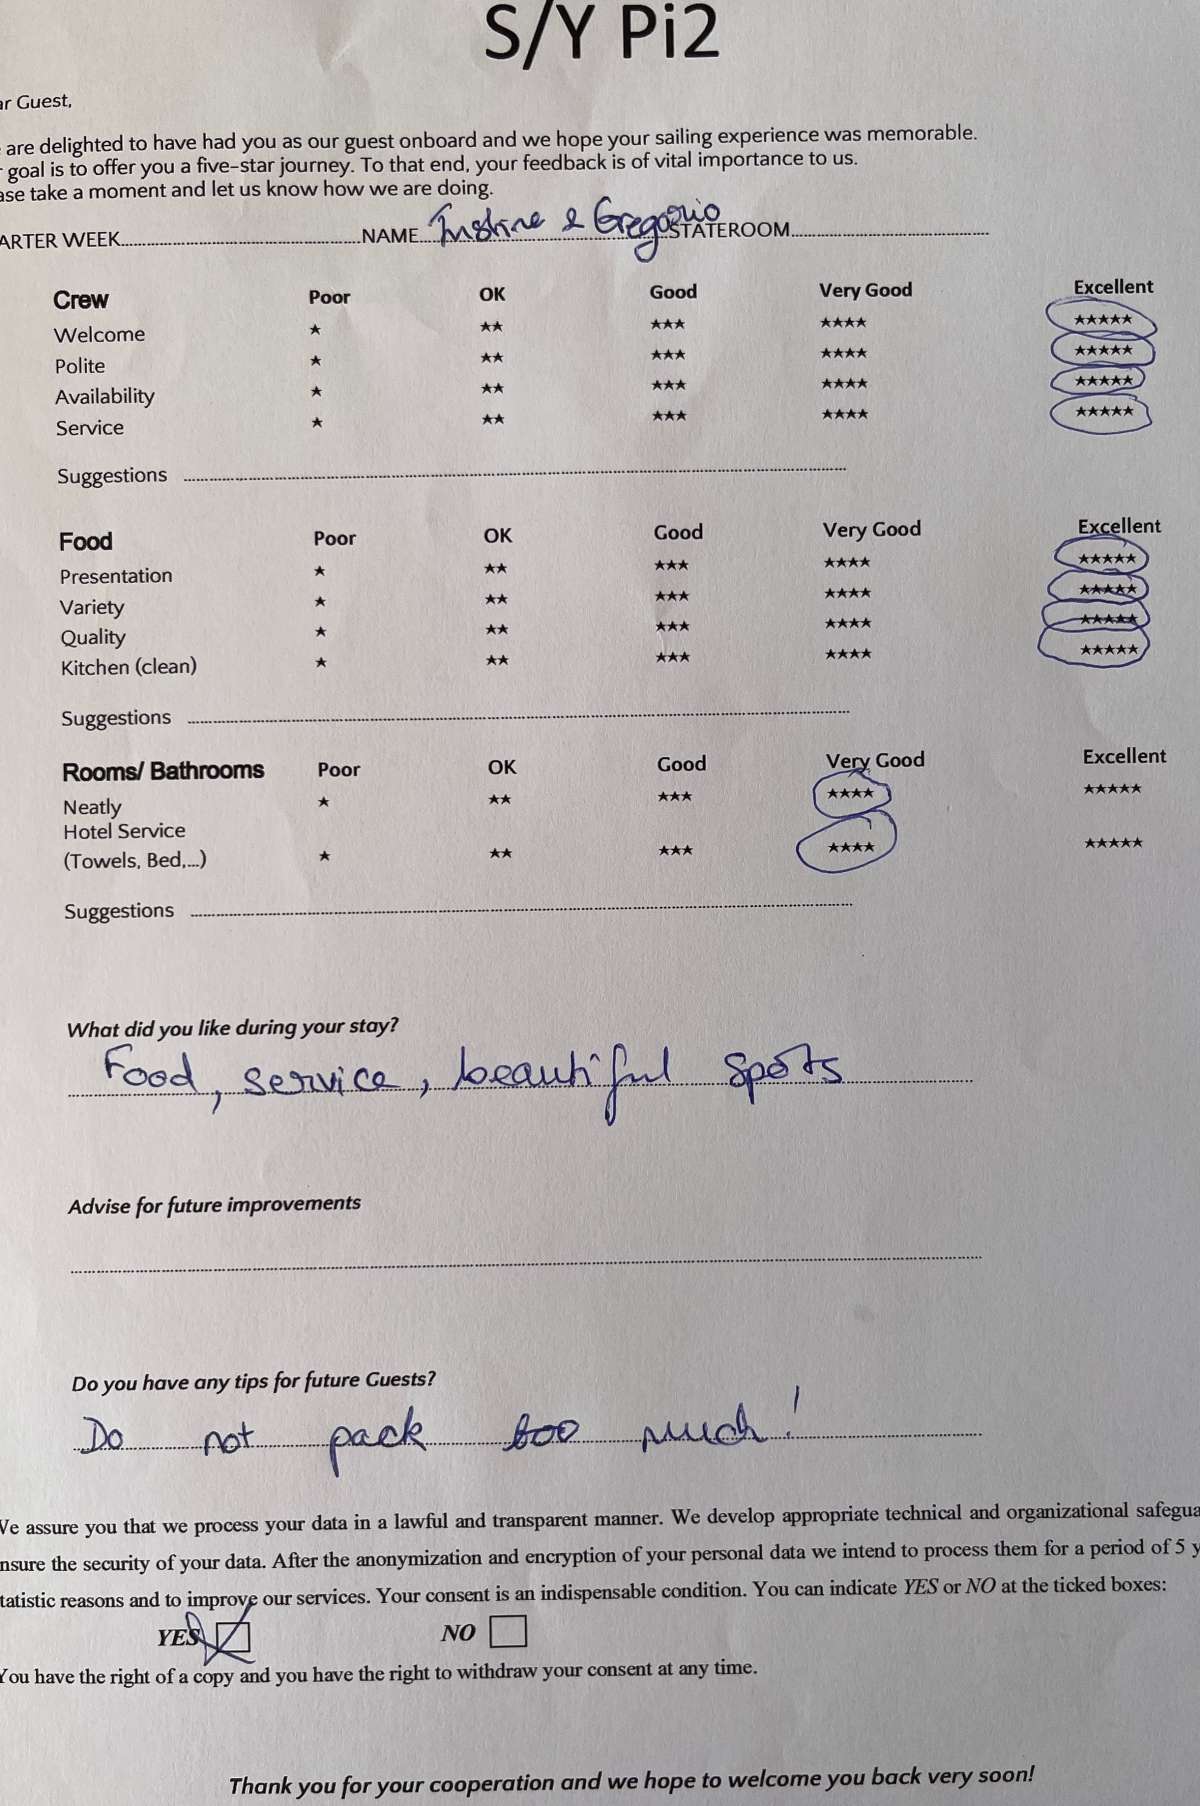 S/Y Pi2
ar Guest,
are delighted to have had you as our guest onboard and we hope your sailing experience was memorable.
goal is to offer you a five-star journey. To that end, your feedback is of vital importance to us.
ase take a moment and let us know how we are doing.
ARTER WEEK NAME & Gregorio STATEROOM
Crew Poor OK Good Very Good Excellent
Welcome ★ ★★ ★★★ ★★★★ ★★★★★
Polite ★ ★★ ★★★ ★★★★ ★★★★★
Availability ★ ★★ ★★★ ★★★★ ★★★★★
Service ★ ★★ ★★★ ★★★★ ★★★★★
Suggestions
Food Poor OK Good Very Good Excellent
Presentation ★ ★★ ★★★ ★★★★ ★★★★★
Variety ★ ★★ ★★★ ★★★★ ★★★★★
Quality ★ ★★ ★★★ ★★★★ ★★★★★
Kitchen (clean) ★ ★★ ★★★ ★★★★ ★★★★★
Suggestions
Rooms/ Bathrooms Poor OK Good Very Good Excellent
Neatly ★ ★★ ★★★ ★★★★ ★★★★★
Hotel Service
(Towels, Bed,...) ★ ★★ ★★★ ★★★★ ★★★★★
Suggestions
What did you like during your stay?
Food, service, beautiful spots
Advise for future improvements
Do you have any tips for future Guests?
Do not pack too much!
We assure you that we process your data in a lawful and transparent manner. We develop appropriate technical and organizational safegua
nsure the security of your data. After the anonymization and encryption of your personal data we intend to process them for a period of 5 y
tatistic reasons and to improve our services. Your consent is an indispensable condition. You can indicate YES or NO at the ticked boxes:
YES NO
You have the right of a copy and you have the right to withdraw your consent at any time.
Thank you for your cooperation and we hope to welcome you back very soon!